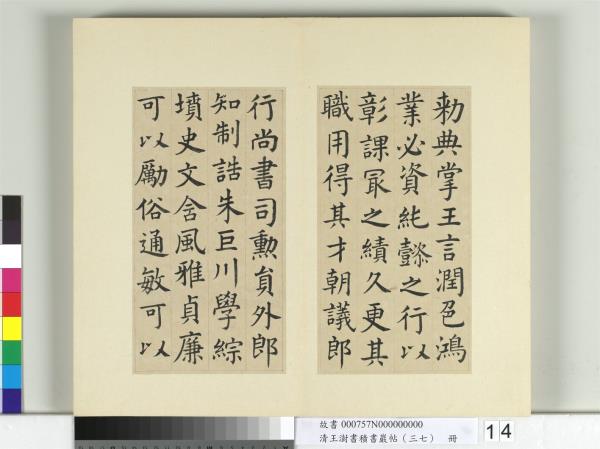 勅典掌王言潤色鴻
業必資純懿之行以
彰課最之績久更其
職用得其才朝議郎
行尚書司勳員外郎
知制誥朱巨川學綜
墳史文含風雅貞廉
可以勵俗通敏可以
故書 000757N000000000
清王澍書積書巖帖(三七) 冊
14